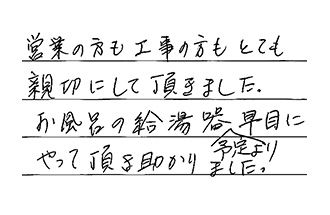 営業の方も工事の方もとても
親切にして頂きました。
お風呂の給湯器早目に
予定より
やって頂き助かりました。